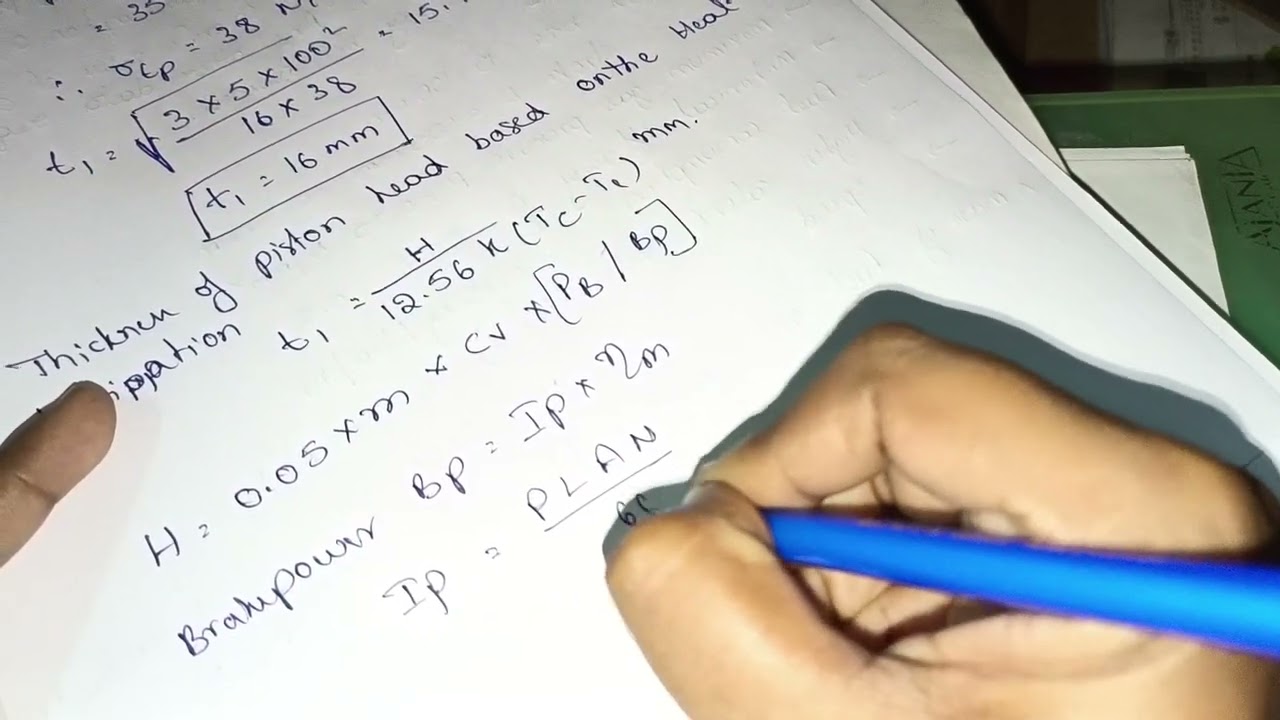 = 35
∴ σtp = 38 N/
t1 = √(3 × 5 × 100² / 16 × 38) = 15.
t1 = 16 mm
Thickness of piston head based on the Heat
t1 = H / 12.56 K (Tc - Te) mm.
H = 0.05 × m × Cv × [PB / BP]
Brakepower BP = IP × ηm
IP = PLAN
AJANTA